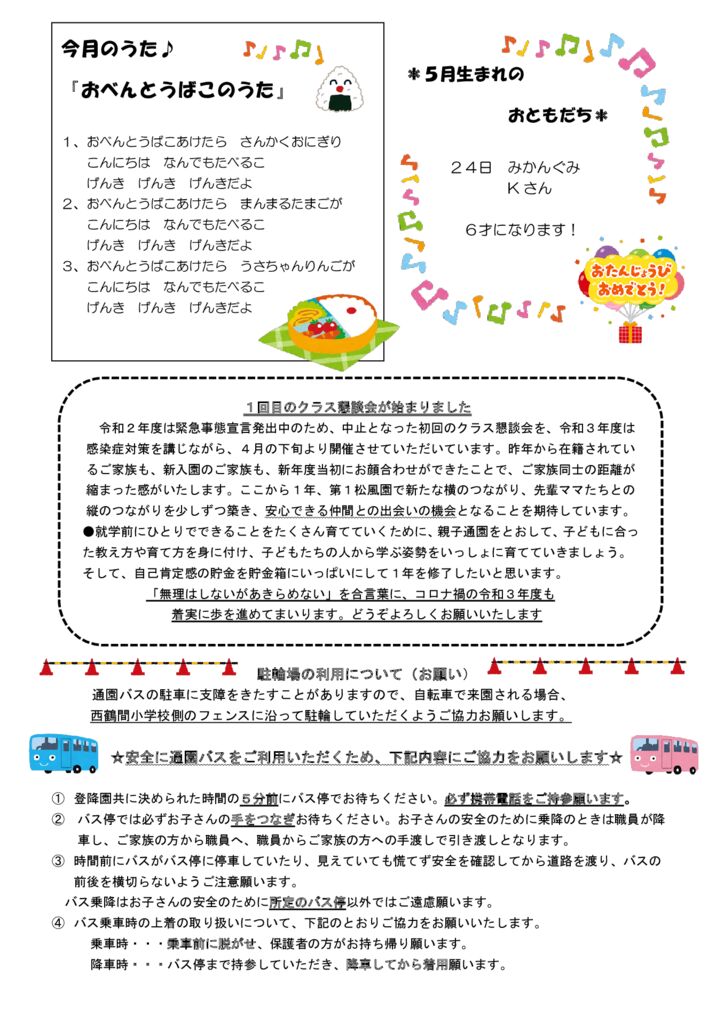 今月のうた♪
『おべんとうばこのうた』
１、おべんとうばこあけたら　さんかくおにぎり
こんにちは　なんでもたべるこ
げんき　げんき　げんきだよ
２、おべんとうばこあけたら　まんまるたまごが
こんにちは　なんでもたべるこ
げんき　げんき　げんきだよ
３、おべんとうばこあけたら　うさちゃんりんごが
こんにちは　なんでもたべるこ
げんき　げんき　げんきだよ
＊５月生まれの
おともだち＊
２４日　みかんぐみ
Ｋさん
６才になります！
おたんじょうび
おめでとう！
１回目のクラス懇談会が始まりました
令和２年度は緊急事態宣言発出中のため、中止となった初回のクラス懇談会を、令和３年度は
感染症対策を講じながら、４月の下旬より開催させていただいています。昨年から在籍されてい
るご家族も、新入園のご家族も、新年度当初にお顔合わせができたことで、ご家族同士の距離が
縮まった感がいたします。ここから１年、第１松風園で新たな横のつながり、先輩ママたちとの
縦のつながりを少しずつ築き、安心できる仲間との出会いの機会となることを期待しています。
●就学前にひとりでできることをたくさん育てていくために、親子通園をとおして、子どもに合っ
た教え方や育て方を身に付け、子どもたちの人から学ぶ姿勢をいっしょに育てていきましょう。
そして、自己肯定感の貯金を貯金箱にいっぱいにして１年を修了したいと思います。
「無理はしないがあきらめない」を合言葉に、コロナ禍の令和３年度も
着実に歩を進めてまいります。どうぞよろしくお願いいたします
駐輪場の利用について（お願い）
通園バスの駐車に支障をきたすことがありますので、自転車で来園される場合、
西鶴間小学校側のフェンスに沿って駐輪していただくようご協力お願いします。
☆安全に通園バスをご利用いただくため、下記内容にご協力をお願いします☆
①　登降園共に決められた時間の５分前にバス停でお待ちください。必ず携帯電話をご持参願います。
②　バス停では必ずお子さんの手をつなぎお待ちください。お子さんの安全のために乗降のときは職員が降
車し、ご家族の方から職員へ、職員からご家族の方への手渡しで引き渡しとなります。
③　時間前にバスがバス停に停車していたり、見えていても慌てず安全を確認してから道路を渡り、バスの
前後を横切らないようご注意願います。
バス乗降はお子さんの安全のために所定のバス停以外ではご遠慮願います。
④　バス乗車時の上着の取り扱いについて、下記のとおりご協力をお願いいたします。
乗車時・・・乗車前に脱がせ、保護者の方がお持ち帰り願います。
降車時・・・バス停まで持参していただき、降車してから着用願います。